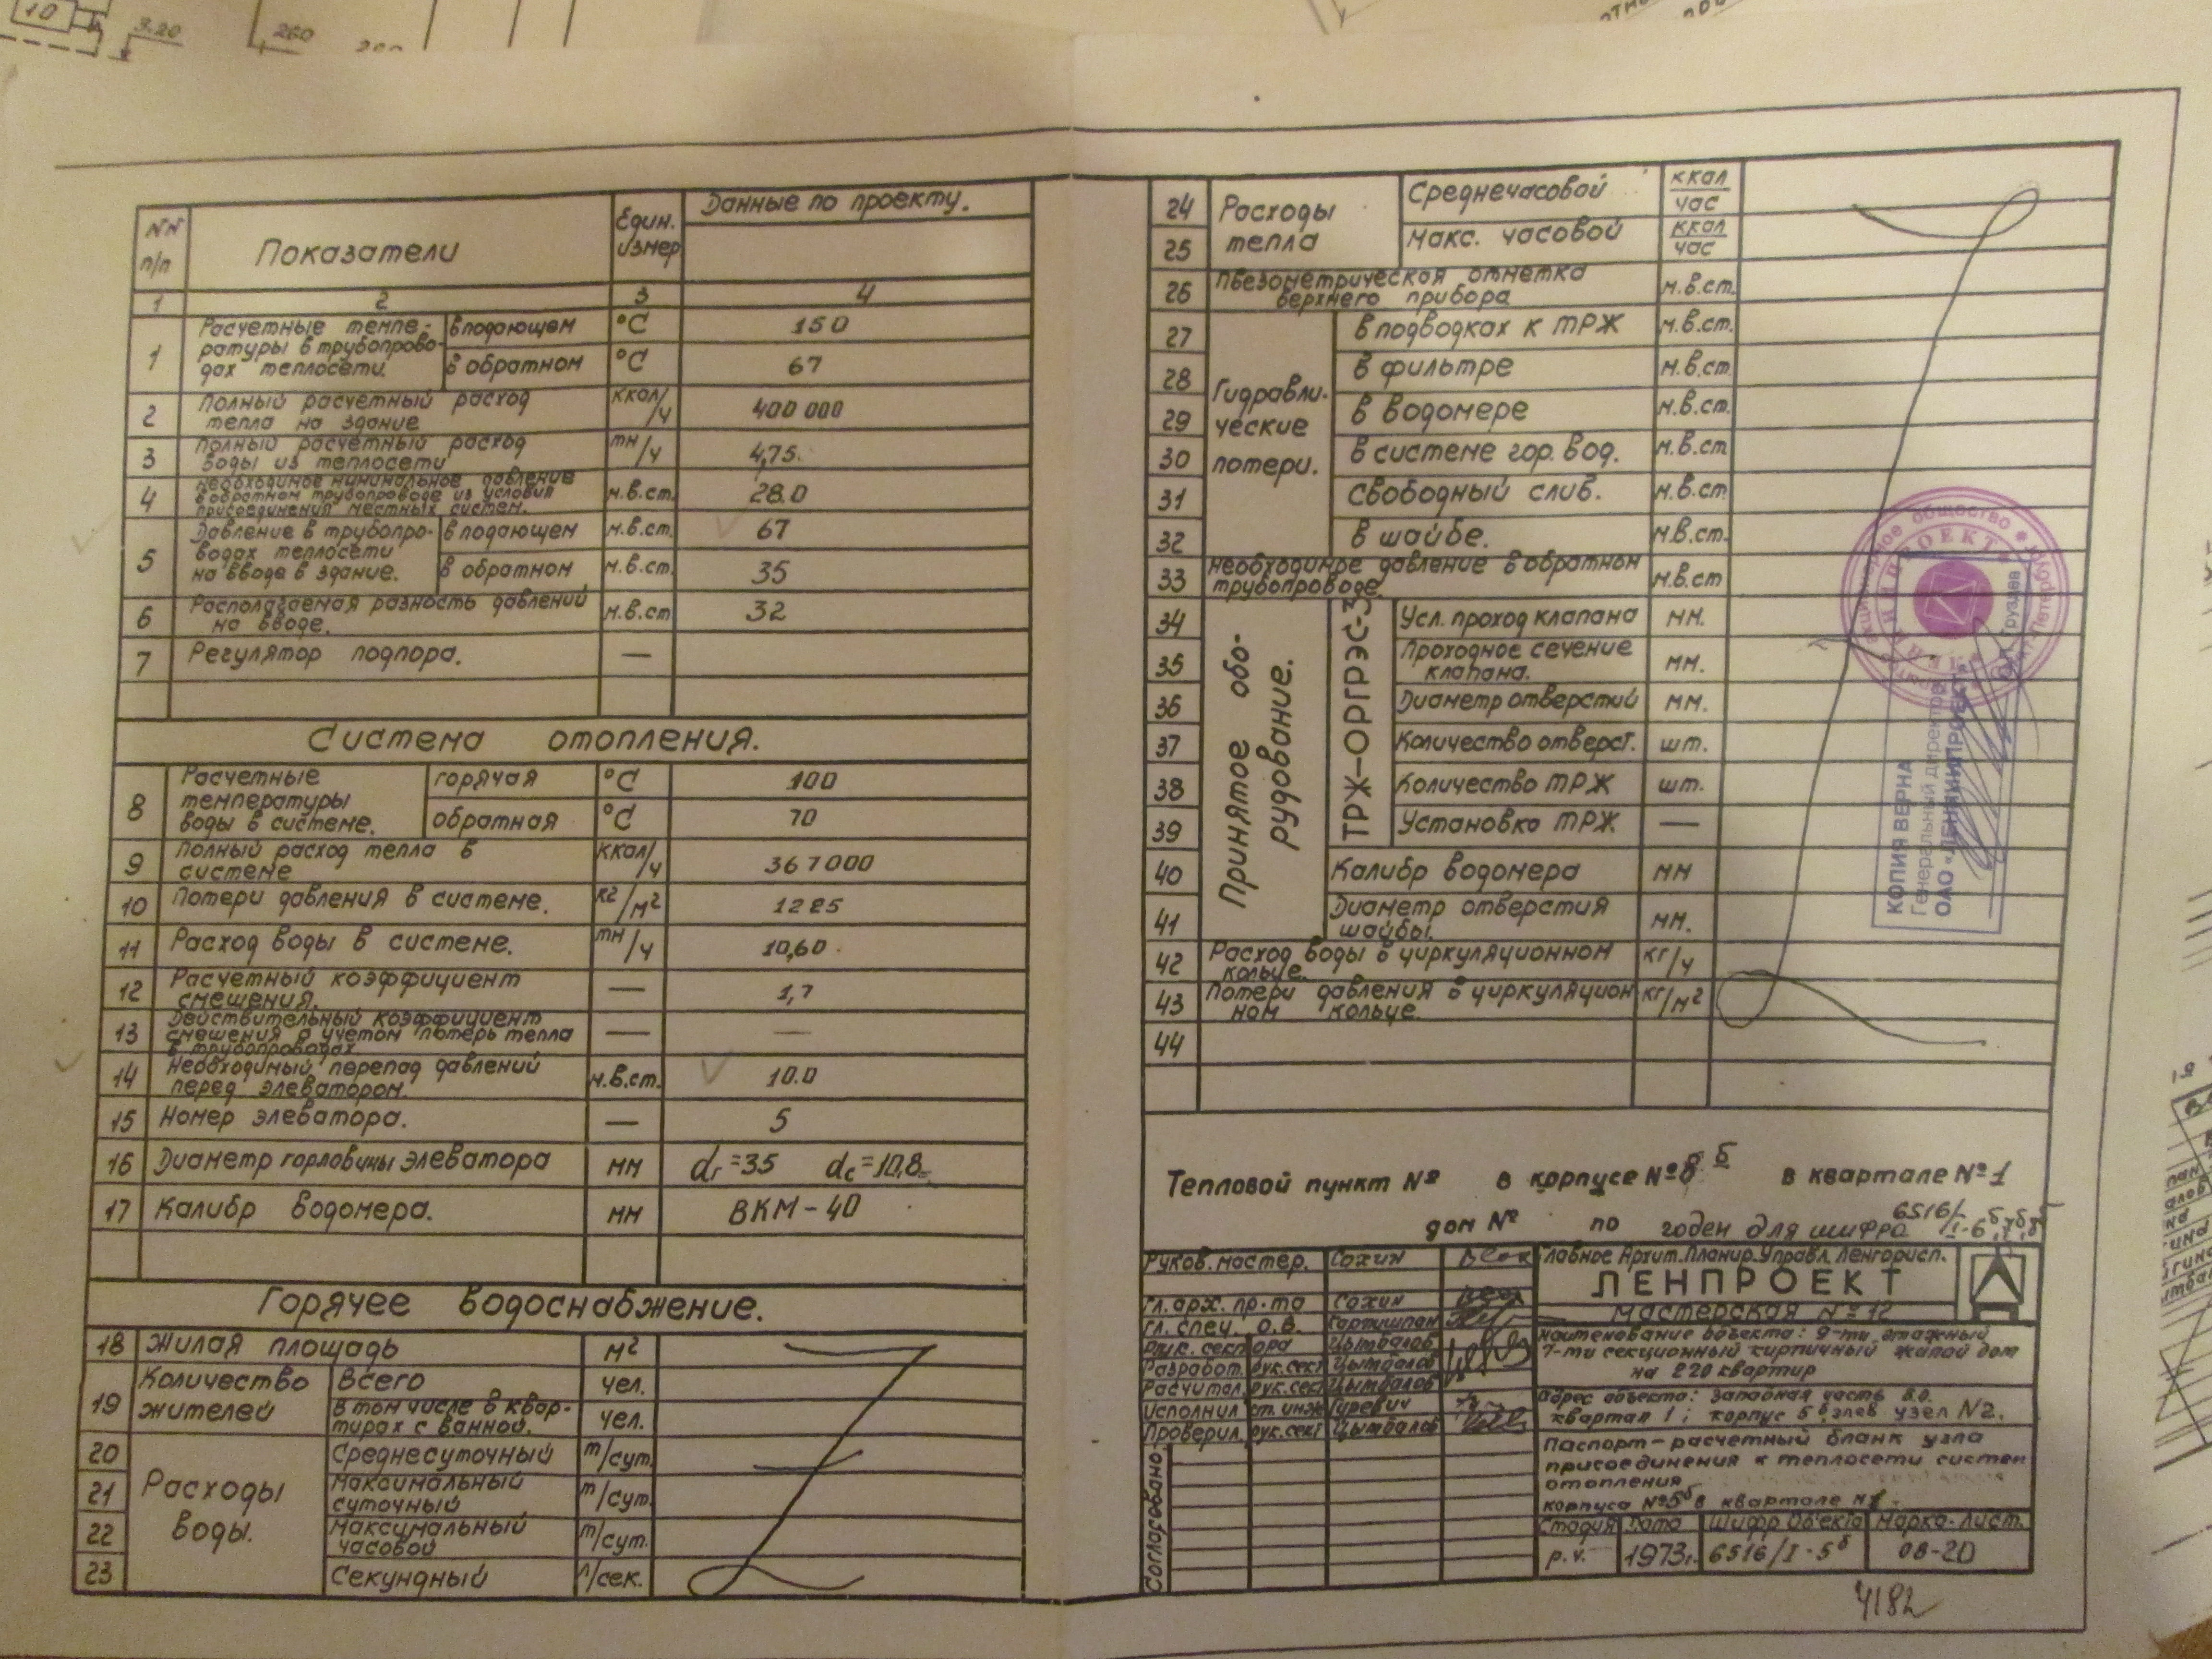 10
3.20
260
NN п/п
Показатели
Един. измер
Данные по проекту.
1 2 3 4
1 Расчетные темпе-
ратуры в трубопрово-
дах теплосети.
в подающем °C 150
в обратном °C 67
2 Полный расчетный расход
тепла на здание ккал/ч 400 000
3 Полный расчетный расход
воды из теплосети тн/ч 4,75.
4 Необходимое минимальное давление
в обратном трубопроводе из условия
присоединения местных систем. м.в.ст. 28.0
5 Давление в трубопро-
водах теплосети
на вводе в здание.
в подающем м.в.ст. 67
в обратном м.в.ст. 35
6 Располагаемая разность давлений
на вводе. м.в.ст 32
7 Регулятор подпора. —
Система отопления.
8 Расчетные
температуры
воды в системе.
горячая °C 100
обратная °C 70
9 Полный расход тепла в
системе ккал/ч 367000
10 Потери давления в системе. кг/м² 1225
11 Расход воды в системе. тн/ч 10,60
12 Расчетный коэффициент
смешения. — 1,7
13 Действительный коэффициент
смешения с учетом потерь тепла
в трубопроводах — —
14 Необходимый перепад давлений
перед элеватором. м.в.ст. 10.0
15 Номер элеватора. — 5
16 Диаметр горловины элеватора мм dг=35 dс=10,8
17 Калибр водомера. мм ВКМ-40
Горячее водоснабжение.
18 Жилая площадь м²
19 Количество
жителей
Всего чел.
в том числе в квар-
тирах с ванной. чел.
Расходы
воды.
20 Среднесуточный т/сут.
21 Максимальный
суточный т/сут.
22 Максимальный
часовой т/сут.
23 Секундный л/сек.
Расходы
тепла
24 Среднечасовой ккал/час
25 Макс. часовой ккал/час
26 Пьезометрическая отметка
верхнего прибора м.в.ст.
Гидравли-
ческие
потери.
27 в подводках к ТРЖ м.в.ст.
28 в фильтре м.в.ст
29 в водомере м.в.ст.
30 в системе гор. вод. м.в.ст
31 Свободный слив. м.в.ст
32 в шайбе. м.в.ст.
33 Необходимое давление в обратном
трубопроводе м.в.ст
Принятое обо-
рудование.
ТРЖ-ОРГРЭС-3
34 Усл. проход клапана мм.
35 Проходное сечение
клапана. мм.
36 Диаметр отверстий мм.
37 Количество отверст. шт.
38 Количество ТРЖ шт.
39 Установка ТРЖ —
40 Калибр водомера мм
41 Диаметр отверстия
шайбы. мм.
42 Расход воды в циркуляционном
кольце. кг/ч
43 Потери давления в циркуляцион
ном кольце. кг/м²
44
КОПИЯ ВЕРНА
Генеральный директор
ОАО «ЛЕННИИПРОЕКТ»
Тепловой пункт № в корпусе №8 б в квартале №1
дом № по годен для шифра 6516/I-6б,7б,8б
Руков. мастер. Сохин
Гл. арх. пр-та Сохин
Гл. спец. О.В.
Рук. сектора Цымбалов
Разработ. рук. сект Цымбалов
Расчитал. рук. сект Цымбалов
Исполнил ст. инж Гуревич
Проверил. рук. сект Цымбалов
Согласовано
Главное Архит. Планир. Управл. Ленгорисп.
ЛЕНПРОЕКТ
мастерская №12
Наименование объекта: 9-ти этажный
7-ми секционный кирпичный жилой дом
на 220 квартир
Адрес объекта: западная часть В.О.
квартал 1; корпус 5б элев узел N2.
Паспорт-расчетный бланк узла
присоединения к теплосети систем
отопления
корпуса №5б в квартале №1.
Стадия Дата Шифр Объекта Марка-лист.
р.ч. 1973г. 6516/I-5б ОВ-20
4182